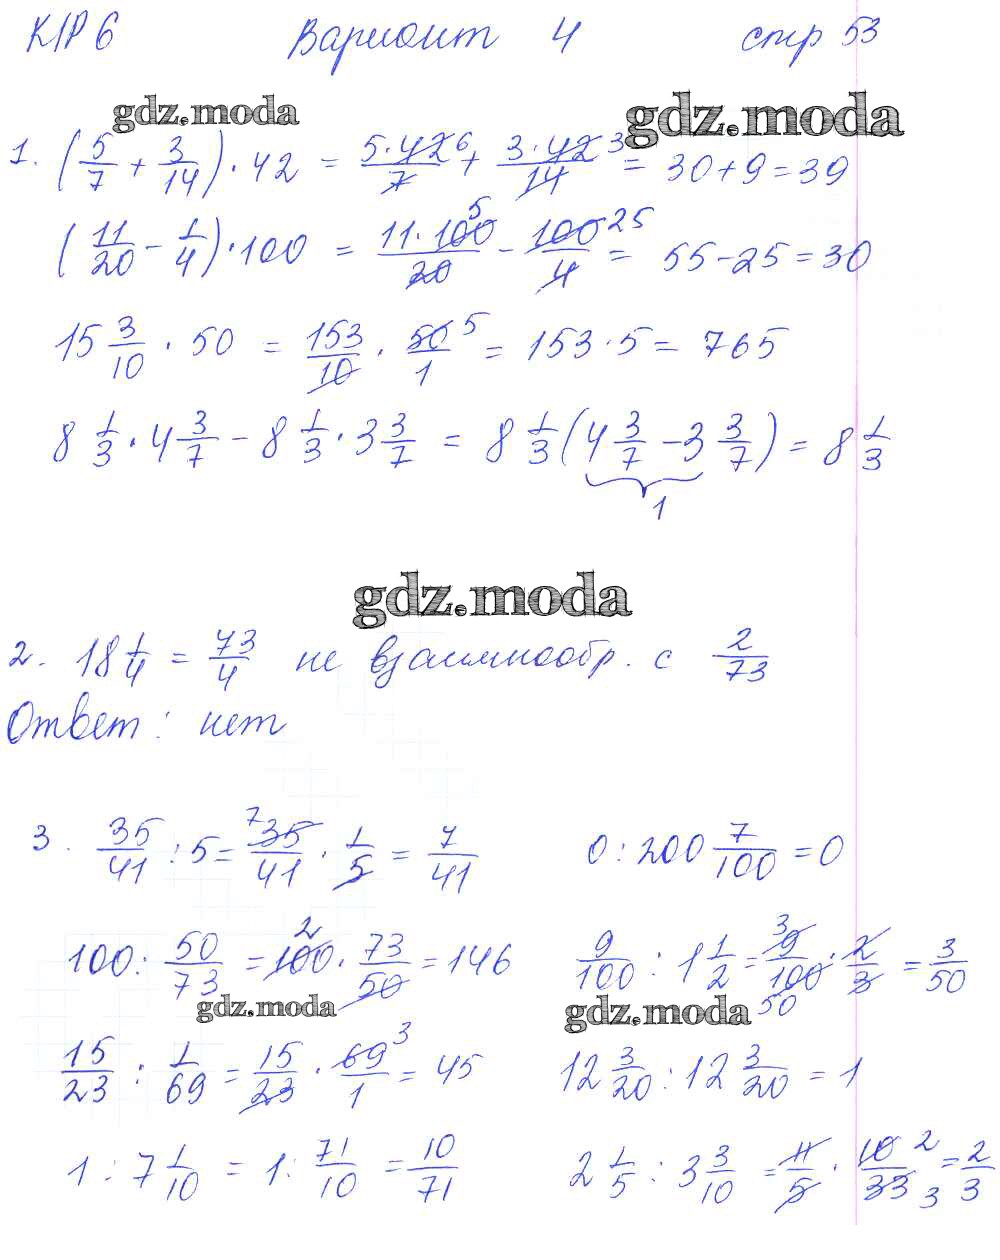 К/Р 6 Вариант 4 стр 53
gdz.moda gdz.moda
1. (5/7 + 3/14) · 42 = 5·42/7 6 + 3·42/14 3 = 30 + 9 = 39
(11/20 − 1/4) · 100 = 11·100/20 5 − 100/4 25 = 55 − 25 = 30
15 3/10 · 50 = 153/10 · 50/1 5 = 153 · 5 = 765
8 1/3 · 4 3/7 − 8 1/3 · 3 3/7 = 8 1/3 (4 3/7 − 3 3/7) = 8 1/3
1
gdz.moda
2. 18 1/4 = 73/4 не взаимнообр. с 2/73
Ответ: нет
3. 35/41 : 5 = 7 35/41 · 1/5 = 7/41 0 : 200 7/100 = 0
100 : 50/73 = 2 100 · 73/50 = 146 9/100 : 1 1/2 = 3 9/100 50 · 2/3 = 3/50
gdz.moda gdz.moda
15/23 : 1/69 = 15/23 · 69/1 3 = 45 12 3/20 : 12 3/20 = 1
1 : 7 1/10 = 1 : 71/10 = 10/71 2 1/5 : 3 3/10 = 11/5 · 10/33 2 3 = 2/3